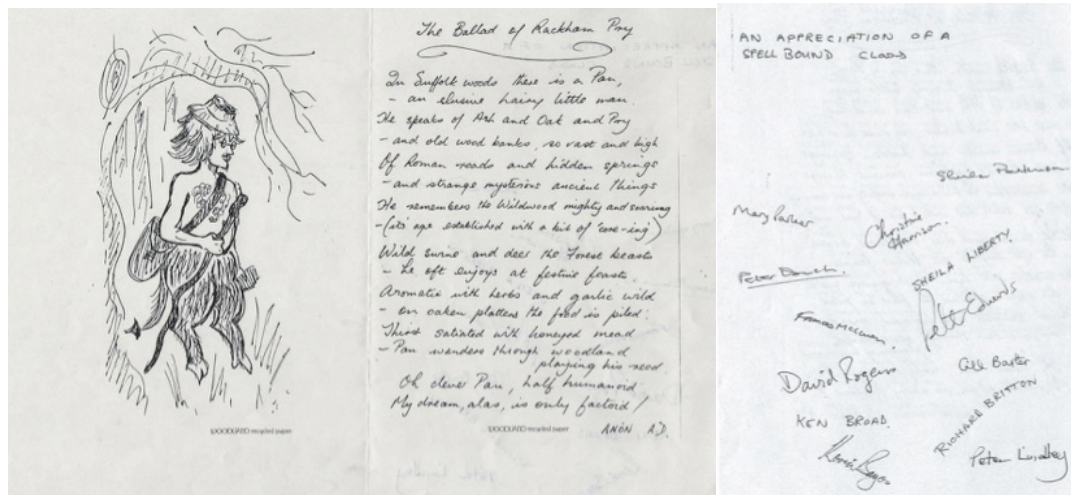 The Ballad of Rackham Pry
In Suffolk woods there is a Pan,
- an elusive hairy little man.
He speaks of Ash and Oak and Pry
- and old wood banks, so vast and high
Of Roman roads and hidden springs
- and strange mysterious ancient things
He remembers the Wildwood mighty and soaring
- (its age established with a bit of 'core-ing')
Wild swine and deer the Forest beasts
- he oft enjoys at festive feasts.
Aromatic with herbs and garlic wild
- on oaken platters the food is piled:
Thirst satiated with honeyed mead
- Pan wanders through woodland
playing his reed.
Oh clever Pan, half humanoid
My dream, alas, is only factoid!
ANON A.D.
WOODLAND recycled paper
WOODLAND recycled paper
AN APPRECIATION OF A
SPELL BOUND CLASS
Sheila
Mary Parker
Christine
Harrison.
SHEILA LIBERTY.
Peter
Edwards
Frances
David Rogers
Gill Baxter
KEN BROAD.
RICHARD BRITTON
Peter Lindley